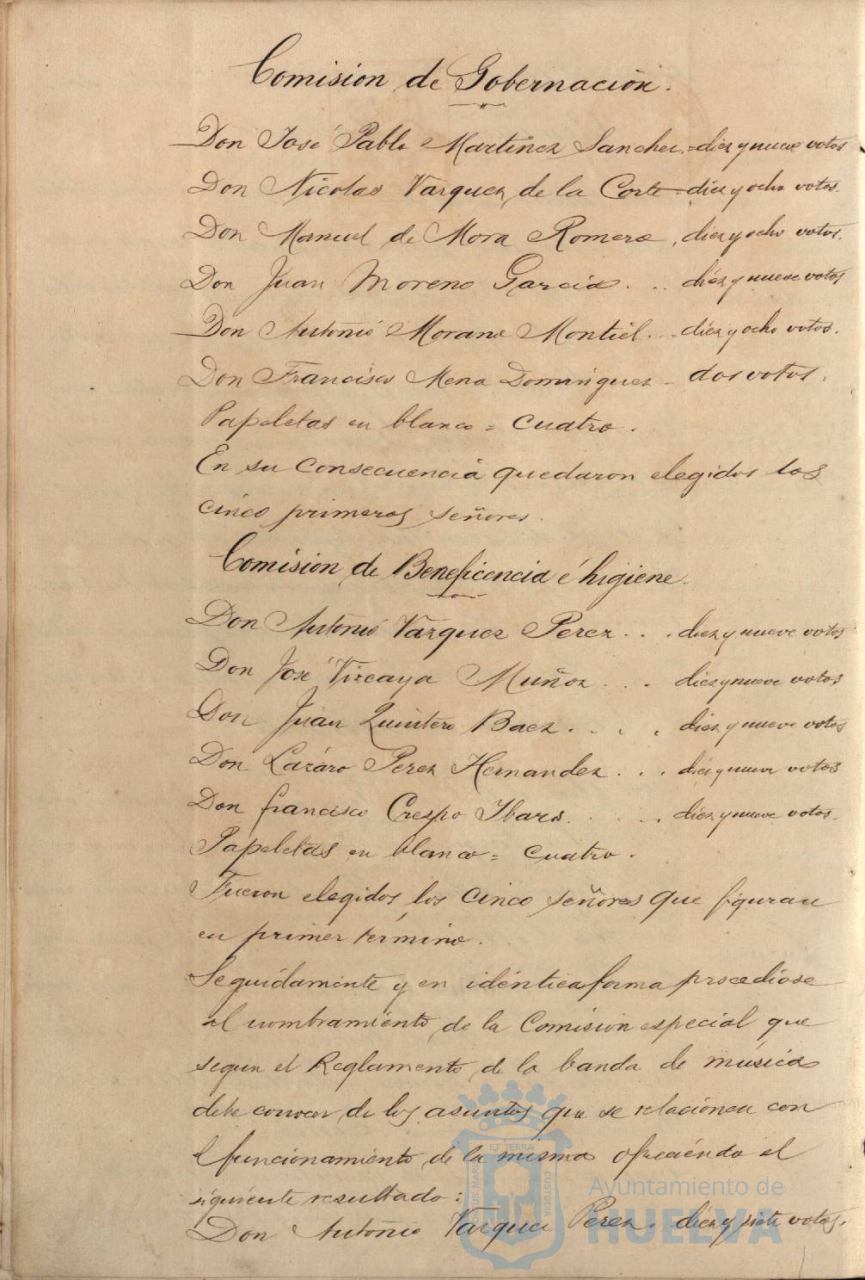 Comision de Gobernación.
Don José Pablo Martinez Sanchez = diez y nueve votos
Don Nicolas Vazquez de la Corte - diez y ocho votos.
Don Manuel de Mora Romero, diez y ocho votos.
Don Juan Moreno Garcia . .. diez y nueve votos
Don Antonio Morano Montiel . .. diez y ocho votos.
Don Francisco Mena Dominguez - dos votos.
Papeletas en blanco = cuatro.
En su consecuencia quedaron elegidos los
cinco primeros señores.
Comision de Beneficencia é higiene.
Don Antonio Vazquez Perez . . . diez y nueve votos
Don José Vizcaya Muñoz . . . diez y nueve votos
Don Juan Quintero Baez . . . . diez y nueve votos
Don Lazáro Perez Hernandez . . . diez y nueve votos
Don francisco Crespo Ibars . . . . diez y nueve votos.
Papeletas en blanco = cuatro.
Fueron elegidos los cinco señores que figuran
en primer término.
Seguidamente y en idéntica forma procedióse
al nombramiento de la Comision especial que
segun el Reglamento de la banda de música
debe conocer de los asuntos que se relacionen con
el funcionamiento de la misma ofreciendo el
siguiente resultado:
Don Antonio Vazquez Perez . diez y siete votos.
Ayuntamiento de
HUELVA